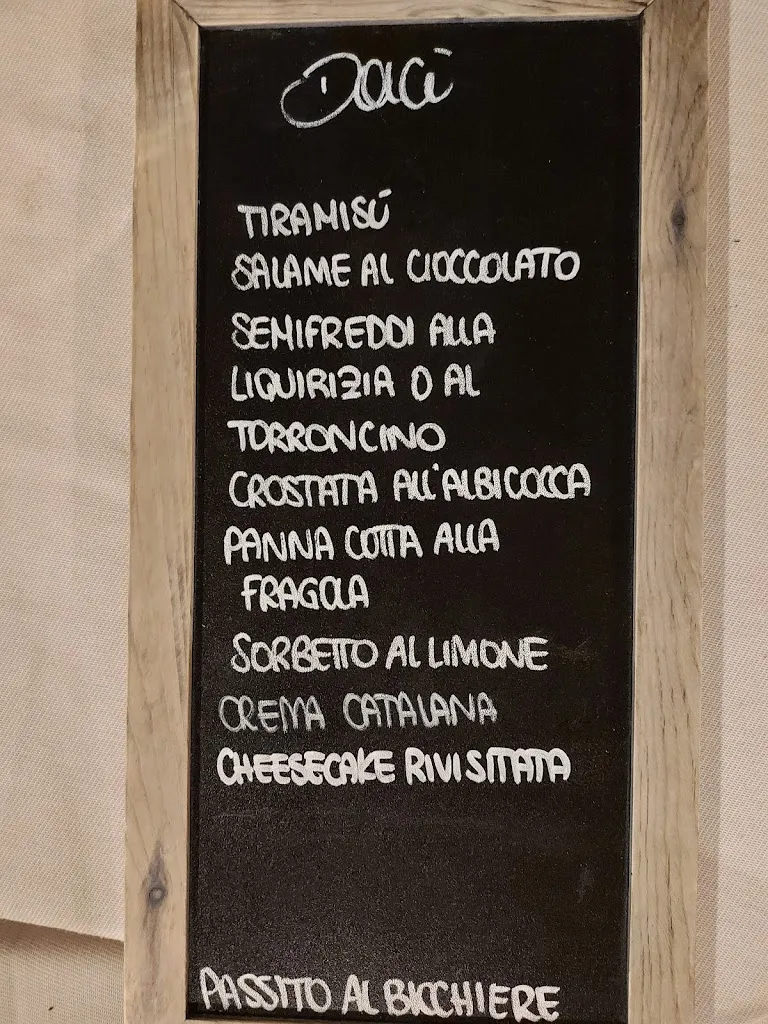 Dolci
TIRAMISÚ
SALAME AL CIOCCOLATO
SEMIFREDDI ALLA
LIQUIRIZIA O AL
TORRONCINO
CROSTATA ALL'ALBICOCCA
PANNA COTTA ALLA
FRAGOLA
SORBETTO AL LIMONE
CREMA CATALANA
CHEESECAKE RIVISITATA
PASSITO AL BICCHIERE